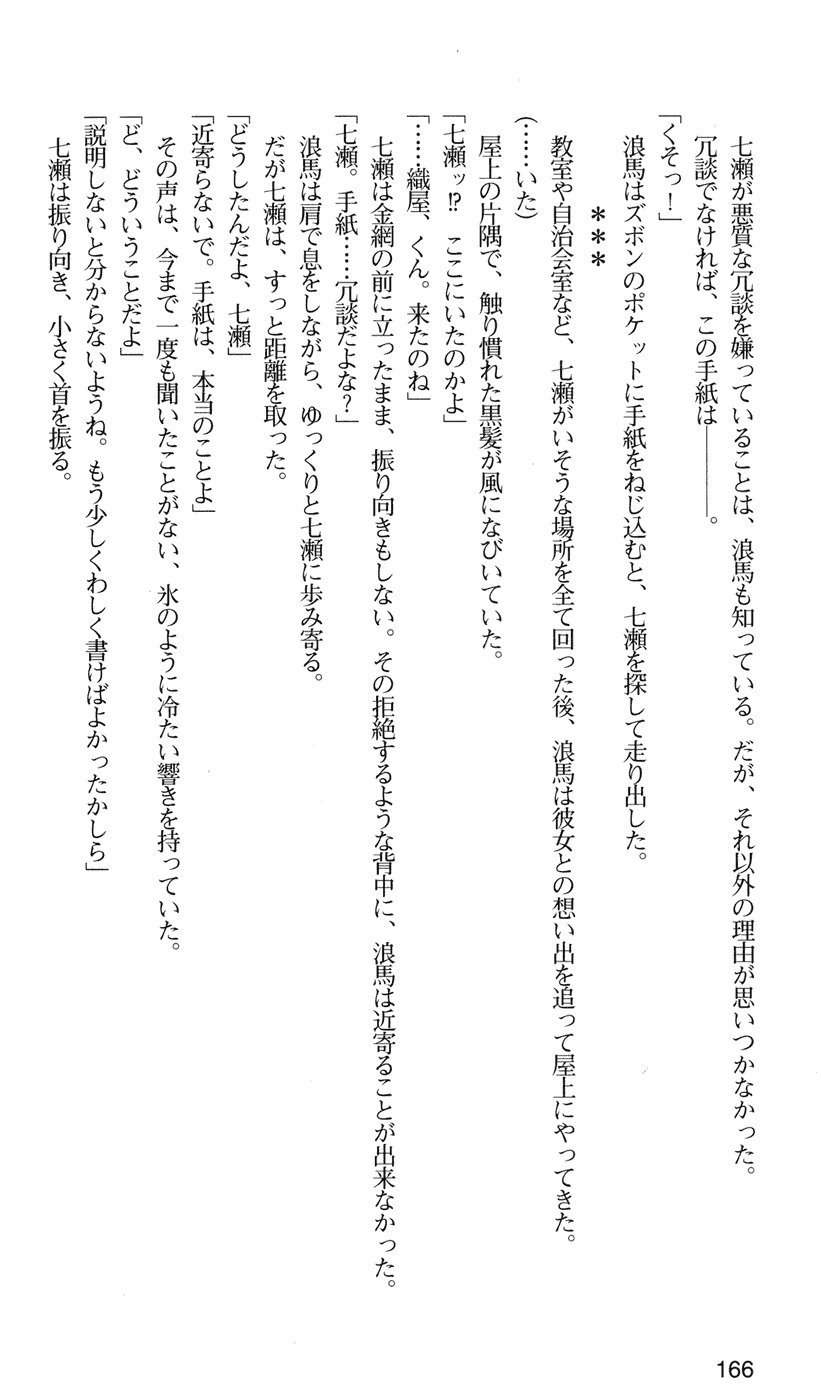 七瀬が悪質な冗談を嫌っていることは、浪馬も知っている。だが、それ以外の理由が思いつかなかった。
冗談でなければ、この手紙は――――。
「くそっ！」
浪馬はズボンのポケットに手紙をねじ込むと、七瀬を探して走り出した。
＊＊＊
教室や自治会室など、七瀬がいそうな場所を全て回った後、浪馬は彼女との想い出を追って屋上にやってきた。
（……いた）
屋上の片隅で、触り慣れた黒髪が風になびいていた。
「七瀬ッ⁉　ここにいたのかよ」
「……織屋、くん。来たのね」
七瀬は金網の前に立ったまま、振り向きもしない。その拒絶するような背中に、浪馬は近寄ることが出来なかった。
「七瀬。手紙……冗談だよな？」
浪馬は肩で息をしながら、ゆっくりと七瀬に歩み寄る。
だが七瀬は、すっと距離を取った。
「どうしたんだよ、七瀬」
「近寄らないで。手紙は、本当のことよ」
その声は、今まで一度も聞いたことがない、氷のように冷たい響きを持っていた。
「ど、どういうことだよ」
「説明しないと分からないようね。もう少しくわしく書けばよかったかしら」
七瀬は振り向き、小さく首を振る。
166